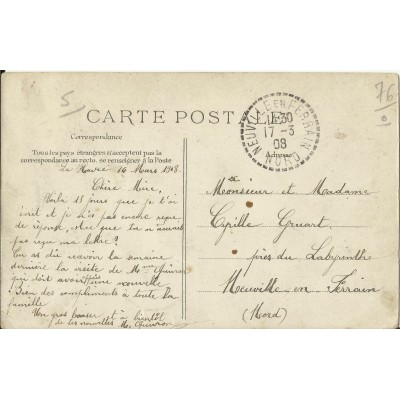 5
76
CARTE POSTALE
NEUVILLE EN FERRAIN
17-3
08
NORD
Correspondance
Adresse
Tous les pays étrangers n'acceptent pas la
correspondance au recto, se renseigner à la Poste
Le Havre 16 Mars 1908.
Chère Mère,
Voilà 15 jours que je t'ai
écrit et je n'ai pas encore reçu
de réponse, est-ce que tu n'aurais
pas reçu ma lettre?
Tu as dû recevoir la semaine
dernière la visite de Mme
qui doit avoir nouvelle
Bien des compliments à toute la
famille
Un gros baiser et à bientôt
de tes nouvelles M.
Monsieur et Madame
Cyrille Gruart
près du Labyrinthe
Neuville en Ferrain
(Nord)